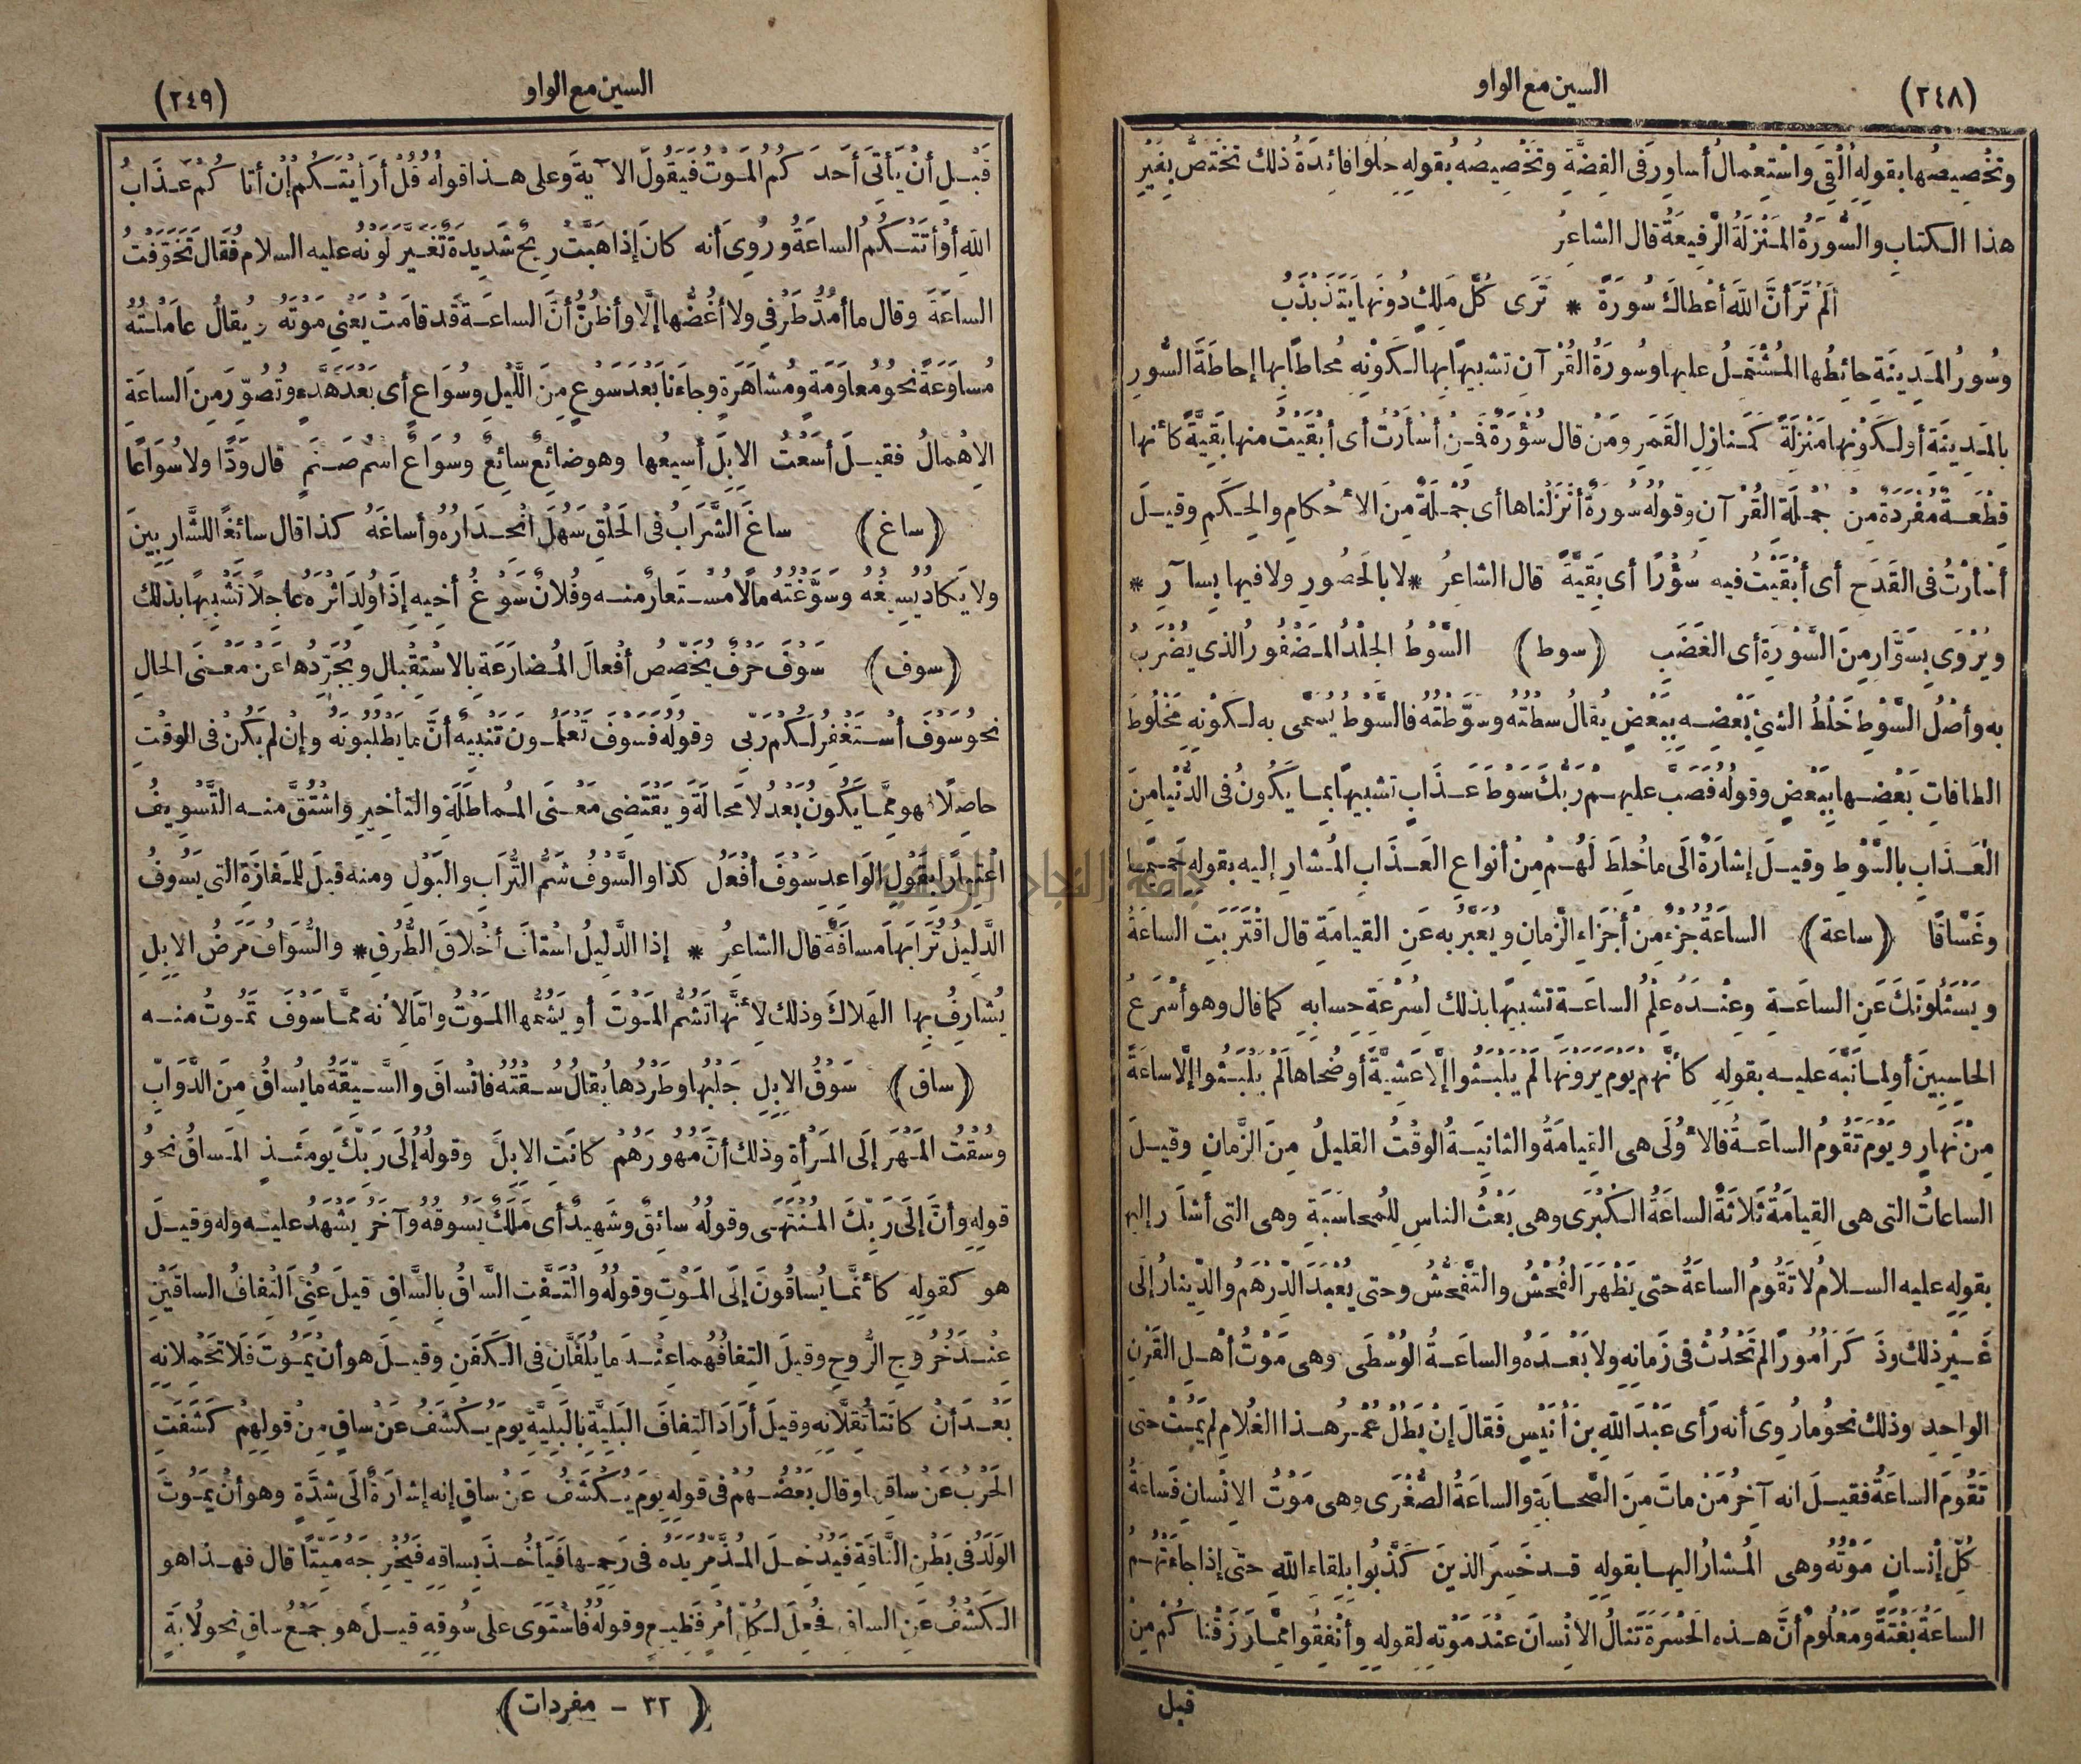 (٢٤٨)
السين مع الواو
وتخْصِيصُها بقولِه أُلْقِىَ واسْتِعْمالُ أساوِرَ فى الفِضَّةِ وتَخْصِيصُه بقولِهِ حُلُّوا فائِدَةُ ذلك تَخْتَصُّ بِغَيْرِ
هذا الكتابِ والسُّورَةُ المَنْزِلَةُ الرَّفِيعَةُ قال الشاعِرُ
ألَمْ تَرَ أنَّ اللهَ أعْطاكَ سُورَةً * تَرَى كُلَّ مَلِكٍ دونَها يَتَذَبْذَبُ
وسُورُ المَدِينَةِ حائِطُها المُشْتَمِلُ عليها وسُورَةُ القُرْآنِ تشبيهًا بها لكَوْنِه مُحاطًا بها إحاطَةَ السُّورِ
بالمَدِينَةِ أو لكَوْنِها مَنْزِلَةً كَمَنازِلِ القَمَرِ ومَنْ قال سُؤْرَةٌ فَمِنْ أسْأَرْتُ أى أبْقَيْتُ منها بَقِيَّةً كأنها
قِطْعَةٌ مُفْرَدَةٌ مِنْ جُمْلَةِ القُرْآنِ وقولُه سُورَةٌ أنْزَلْناها أى جُمْلَةٌ مِنَ الأحْكامِ والحِكَمِ وقيلَ
أسْأرْتُ فى القَدَحِ أى أبْقَيْتُ فيه سُؤْرًا أى بَقِيَّةً قال الشاعِرُ * لا بالحَصُورِ ولا فيها بِسآرِ *
ويُرْوَى بِسَوَّارٍ مِنَ السَّوْرَةِ أى الغَضَبِ (سوط) السَّوْطُ الجِلْدُ المَضْفُورُ الذى يُضْرَبُ
به وأصْلُ السَّوْطِ خَلْطُ الشئِ بَعْضِه بِبَعْضٍ يُقالُ سطْتُه وسَوَّطْتُه فالسَّوْطُ يُسَمَّى به لكَوْنِه مَخْلُوطَ
الطاقاتِ بَعْضِها بِبَعْضٍ وقولُه فَصَبَّ عليهِمْ رَبُّكَ سَوْطَ عَذَابٍ تشبيهًا بما يكونُ فى الدُّنْيا مِنَ
الْعَذَابِ بالسَّوْطِ وقيلَ إشارَةٌ الَى ما خُلِطَ لَهُمْ مِنْ أنواعِ العَذَابِ المُشارِ إليه بقوله حَمِيمًا
وغَسَّاقًا (ساعة) الساعَةُ جُزْءٌ مِنْ أجْزَاءِ الزَّمانِ ويُعَبَّرُ به عَنِ القيامَةِ قال اقْتَرَبَتِ الساعَةُ
ويَسْئَلُونَكَ عَنِ الساعَةِ وعِنْدَهُ عِلْمُ الساعَةِ تشبيهًا بذلك لِسُرْعَةِ حِسابِهِ كما قال وهو أسْرَعُ
الحاسِبِينَ أو لِما نَبَّهَ عليه بقولِهِ كأنَّهُمْ يَوْمَ يَرَوْنَها لَمْ يَلْبَثُوا إلَّا عَشِيَّةً أو ضُحاها لَمْ يَلْبَثُوا إلَّا ساعَةً
مِنْ نَهارٍ ويَوْمَ تَقُومُ الساعَةُ فالأُولَى هى القِيامَةُ والثانِيَةُ الوقْتُ القليلُ مِنَ الزَّمانِ وقيلَ
الساعاتُ التى هى القِيامَةُ ثَلاثَةٌ الساعَةُ الكُبْرَى وهى بَعْثُ الناسِ لِلْمُحاسَبَةِ وهى التى أشارَ إليها
بقولِه عليه السلامُ لا تَقُومُ الساعَةُ حتى يَظْهَرَ الفُحْشُ والتَّفَحُّشُ وحتى يُعْبَدَ الدِّرْهَمُ والدِّينارُ إلَى
غَيْرِ ذلك وذَكَرَ أُمُورًا لم تَحْدُثْ فى زَمانِه ولا بَعْدَهُ والساعَةُ الوُسْطَى وهى مَوْتُ أهْلِ القَرْنِ
الواحِدِ وذلك نحوُ ما رُوِىَ أنه رَأى عَبْدَ اللهِ بنَ أُنَيْسٍ فَقالَ إنْ يَطُلْ عُمْرُ هذا الغُلامِ لم يَمُتْ حتى
تَقُومَ الساعَةُ فقيلَ انه آخِرُ مَنْ ماتَ مِنَ الصَّحابَةِ والساعَةُ الصُّغْرَى وهى مَوْتُ الانْسانِ فَساعَةُ
كُلِّ إنْسانٍ مَوْتُه وهى المُشارُ اليها بقولِهِ قد خَسِرَ الذينَ كَذَّبُوا بِلِقاءِ اللهِ حتى إذا جاءَتْهُمُ
الساعَةُ بَغْتَةً ومَعْلُومٌ أنَّ هذه الحَسْرَةَ تَنالُ الانْسانَ عنْدَ مَوْتِهِ لقولِهِ وأنْفِقُوا مِمَّا رَزَقْناكُمْ مِنْ
قبل
(٢٤٩)
السين مع الواو
قَبْلِ أنْ يَأْتِىَ أحَدَكُمُ المَوْتُ فَيَقُولَ الآيةَ وعلى هذا قولُه قُلْ أرَأَيْتَكُمْ إنْ أتاكُمْ عَذَابُ
اللهِ أوْ أتَتْكُمُ الساعَةُ ورُوِىَ أنه كانَ إذا هَبَّتْ رِيحٌ شَدِيدَةٌ تَغَيَّرَ لَوْنُه عليه السلام فَقال تَخَوَّفْتُ
الساعَةَ وقال ما أمُدُّ طَرْفِى ولا أغُضُّها إلَّا وأظُنُّ أنَّ الساعَةَ قَد قامَتْ يَعْنِى مَوْتَه ويُقالُ عامَلْتُه
مُساوَعَةً نحوُ مُعاوَمَةٍ ومُشاهَرَةٍ وجاءَنا بَعْدَ سَوْعٍ مِنَ اللَّيْلِ وسُوَاعٍ أى بَعْدَ هَدْءٍ وتُصُوِّرَ مِنَ الساعَةِ
الاِهْمالُ فقيلَ أسَعْتُ الاِبِلَ أُسِيعُها وهو ضائِعٌ سائِعٌ وسُوَاعٌ اسْمُ صَنَمٍ قال وَدًّا ولا سُوَاعًا
(ساغ) ساغَ الشَّرَابُ فى الحَلْقِ سَهُلَ انْحِدَارُه وأساغَهُ كذا قال سائِغًا للشَّارِبِينَ
ولا يَكادُ يُسِيغُه وسَوَّغْتُه مالًا مُسْتَعارٌ منه وفُلانٌ سَوْغُ أخِيهِ إذَا وُلِدَ اثْرَهُ عاجِلًا تَشْبِيهًا بذلك
(سوف) سَوْفَ حَرْفٌ يُخَصِّصُ أفْعالَ المُضارَعَةِ بالاسْتِقْبالِ ويُجَرِّدُها عَنْ مَعْنَى الحالِ
نحوُ سَوْفَ أسْتَغْفِرُ لَكُمْ رَبِّى وقولُه فَسَوْفَ تَعْلَمُونَ تَنْبِيهٌ أنَّ ما يَطْلُبُونَهُ وإنْ لم يَكُنْ فى الوقْتِ
حاصِلًا فهو مِمَّا يَكُونُ بَعْدُ لا مَحالَةَ ويَقْتَضِى مَعْنَى المُماطَلَةِ والتأخِيرِ واشْتُقَّ منه التَّسْوِيفُ
اعْتِبارًا بقَوْلِ الوَاعِدِ سَوْفَ أفْعَلُ كذا والسَّوْفُ شَمُّ التُّرَابِ والبَوْلِ ومنه قيلَ للمَفازَةِ التى يَسُوفُ
الدَّلِيلُ تُرَابَها مَسافَةٌ قال الشاعِرُ * إذا الدَّلِيلُ اسْتافَ أخْلاقَ الطُّرُقِ * والسُّوَافُ مَرَضُ الاِبِلِ
يُشارِفُ بِها الهَلاكَ وذلك لأنَّها تَشُمُّ المَوْتَ أو يَشُمُّها المَوْتُ وامَّا لأنه مِمَّا سَوْفَ تَمُوتُ منه
(ساق) سَوْقُ الاِبِلِ جَلْبُها وطَرْدُها يُقالُ سُقْتُه فانْساقَ والسَّيِّقَةُ ما يُساقُ مِنَ الدَّوَابِّ
وسُقْتُ المَهْرَ إلَى المَرْأةِ وذلك أنَّ مُهُورَهُمْ كانَتِ الاِبِلَ وقولُه إلَى رَبِّكَ يومَئِذٍ المَساقُ نحوُ
قولِه وأنَّ إلَى رَبِّكَ المُنْتَهَى وقولُه سائِقٌ وشَهِيدٌ أى مَلَكٌ يَسُوقُه وآخَرُ يَشْهَدُ عليه وله وقيلَ
هو كقوله كأنَّما يُساقُونَ إلَى المَوْتِ وقولُه والْتَفَّتِ السَّاقُ بالسَّاقِ قيلَ عُنِىَ الْتِفافُ الساقَيْنِ
عِنْدَ خُرُوجِ الرُّوحِ وقيلَ التِفافُهُما عِنْدَ ما يُلَفَّانِ فى الكَفَنِ وقيلَ هو أنْ يَمُوتَ فَلا تَحْمِلانِهِ
بَعْدَ أنْ كانَتا تُقِلَّانِهِ وقيلَ أرَادَ التِفافَ البَلِيَّةِ بالبَلِيَّةِ يومَ يُكْشَفُ عَنْ ساقٍ مِنْ قولِهِمْ كَشَفَتِ
الحَرْبُ عَنْ ساقِها وقال بَعْضُهُمْ فى قولِه يومَ يُكْشَفُ عَنْ ساقٍ إنه إشارَةٌ إلَى شِدَّةٍ وهو أنْ يَمُوتَ
الوَلَدُ فى بَطْنِ النَّاقَةِ فَيُدْخِلَ المُذَمِّرُ يَدَهُ فى رَحِمِها فَيَأْخُذَ بِساقِهِ فَيُخْرِجَهُ مَيِّتًا قال فهذا هو
الكَشْفُ عَنِ الساقِ فَجُعِلَ لِكُلِّ أمْرٍ فَظِيعٍ وقولُه فاسْتَوَى على سُوقِهِ قيلَ هو جَمْعُ ساقٍ نحوُ لابَةٍ
(٣٢ - مفردات)
جامعة النجاح الوطنية